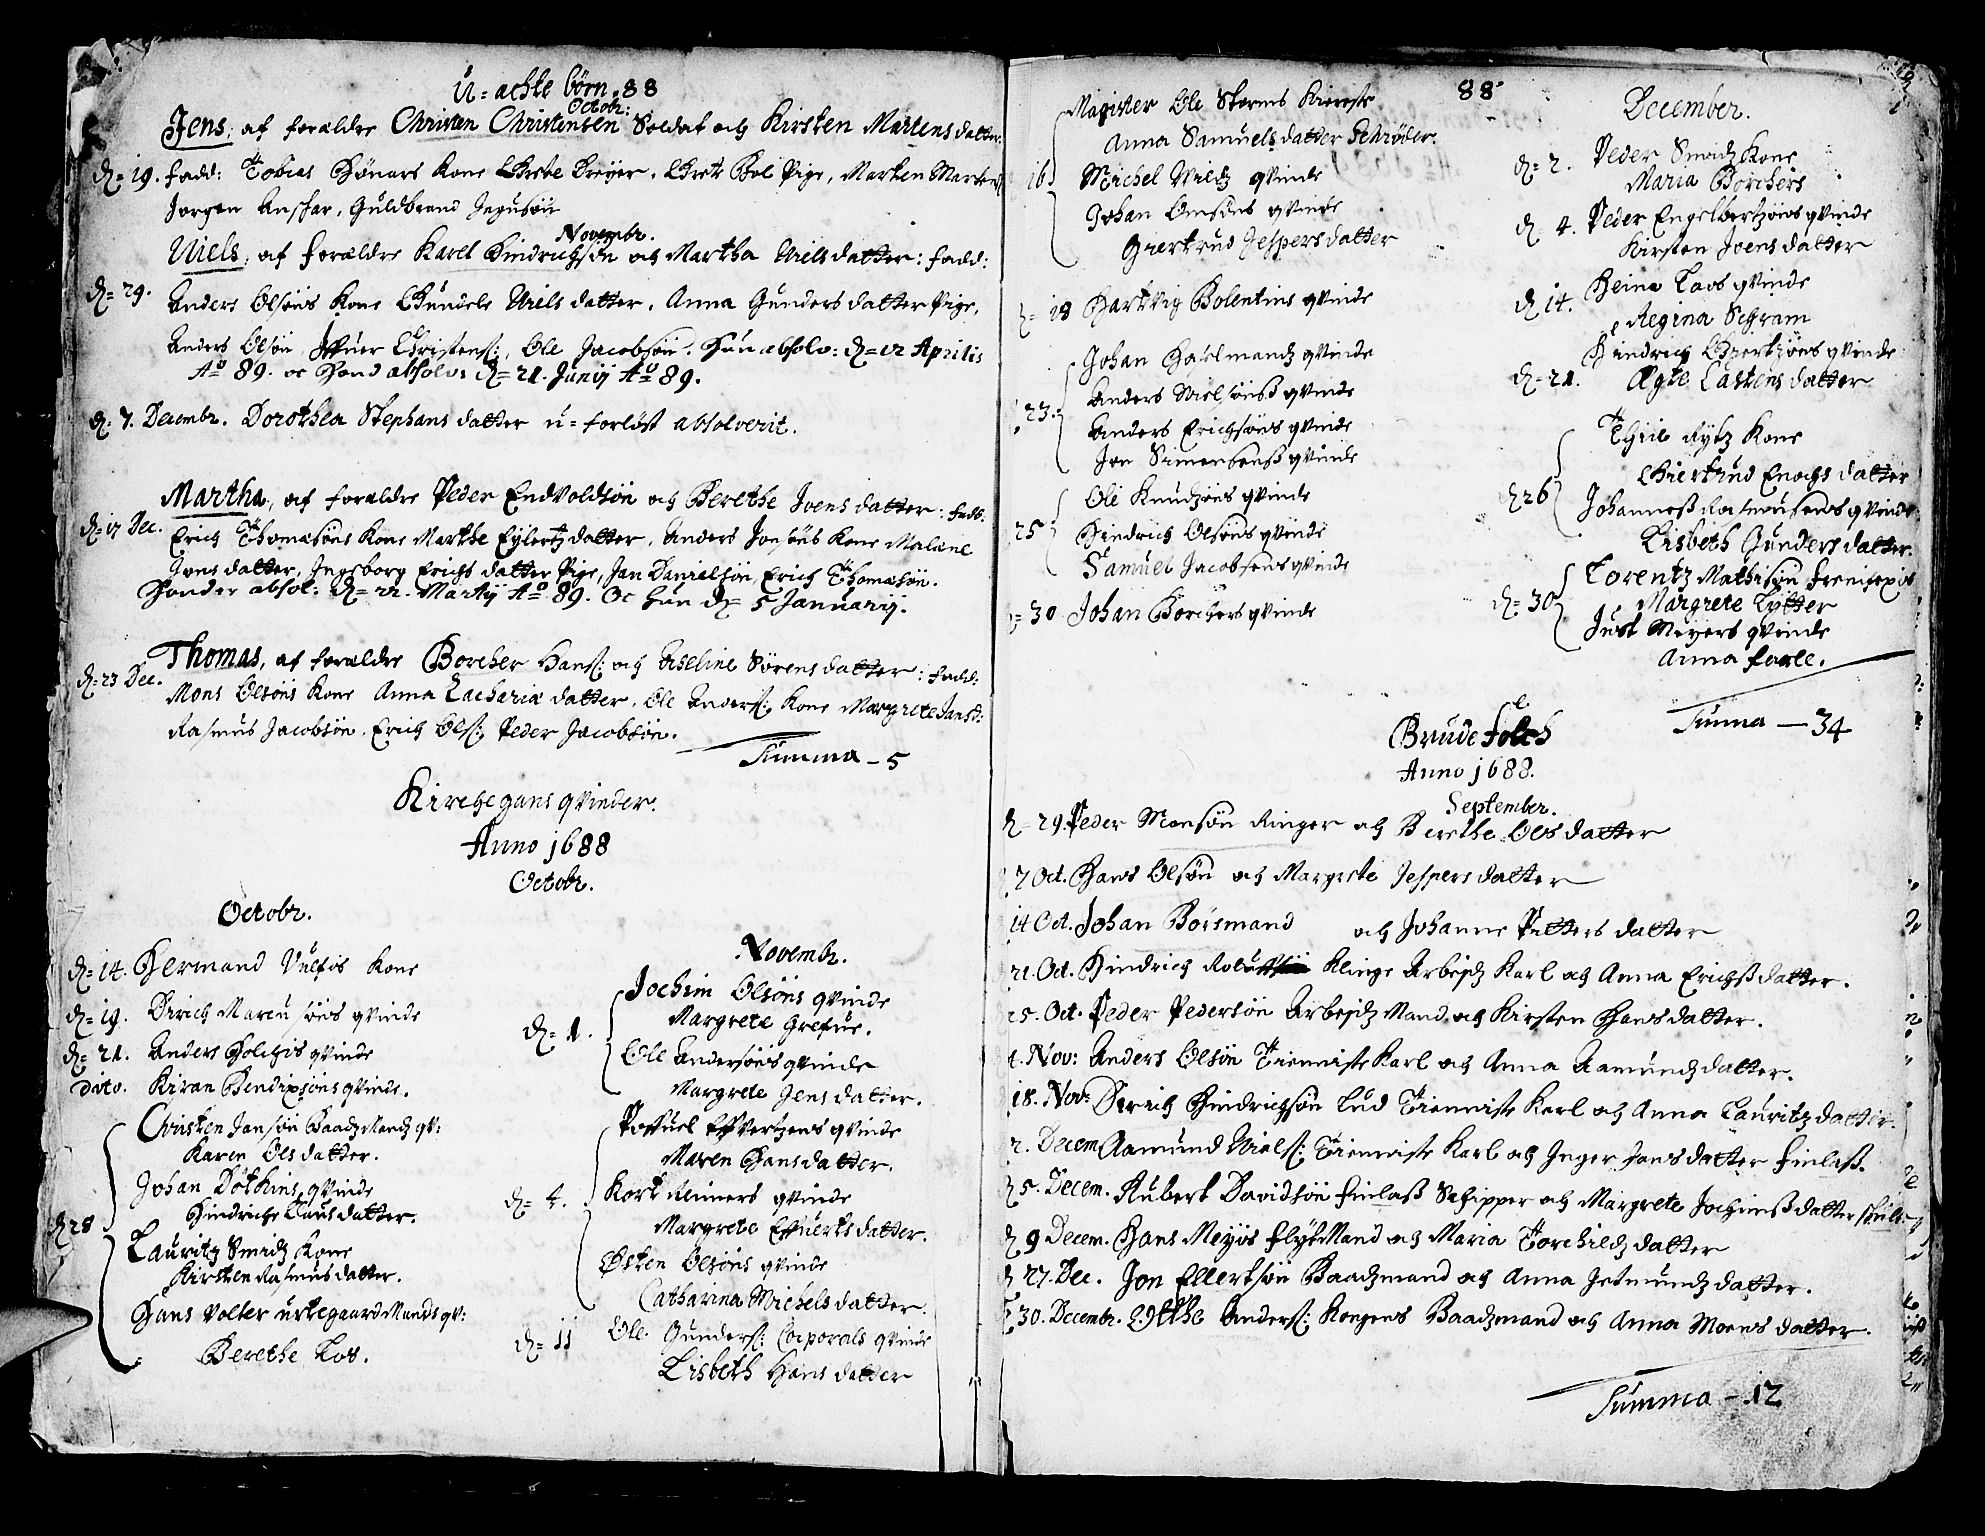 U=achte børn. 88
Octobr:
Jens, af forældre Christen Christensen Soldat och Kirsten Martens datter.
d= 19. fadd: Tobias Kone Grete Dreyer, Pige, Marten Martens
Jørgen Guldbrand
Novembr.
Niels, af forældre Karel Hindrichsøn och Martha Niels datter: fadd:
d= 29. Anders Olsøns Kone Gundele Niels datter, Anna Gunders datter Pige,
Anders Olsøn, Christens:, Ole Jacobsøn. Hun absolv: d= 12 Aprilis
Ao 89. oc Hand absolv: d= 21. Junij Ao 89.
d. 7. Decembr. Dorothea Stephans datter u=forløst absolverit.
Martha, af forældre Peder Endvoldsøn och Berethe Joens datter: fadd:
d= 17 Dec. Erich Thomæsøns Kone Marthe Eylertz datter, Anders Kone Malene
Joens datter, Ingeborg Erichs datter Pige, Jan Danielsøn, Erich Thomæsøn.
absol: d= 22. Martij Ao 89. Oc hun d= 5 Januarij.
Thomas, af forældre Borcher Hans: och Aseline Sørens datter: fadd:
d= 23 Dec. Mons Olsøns Kone Anna Zachariæ datter, Ole Anders: Kone Margrete Jansd:
Rasmus Jacobsøn, Erich Ols: Peder Jacobsøn.
Summa - 5
Kirchegans qvinder.
Anno 1688
Octobr.
Octobr.
d= 14. Hermand Kone
d= 19. Dirich qvinde
d= 21. Anders qvinde
dito. Bendixsøns qvinde.
Christen Jansøn Baadzmandz qv:
Karen Ols datter.
Johan qvinde
d 28 Hindriche Claus datter.
Lauritz Smidz Kone
Kirsten Rasmus datter.
Hans Volter urtegaard Mands qv:
Berethe
Novembr.
Jochim Olsøns qvinde
d= 1. Margrete Grefue.
Ole Andersøns qvinde
Margrete Jens datter.
qvinde
Maren Hans datter.
d= 4. Kort Reiners qvinde
Margrete datter.
Østen Olsøns qvinde
Catharina Michels datter.
d= 11 Ole Gunders: Corporals qvinde
Lisbeth Hans datter
88
Magister Ole Storms Kiereste
Anna Samuels datter Schrøder.
16 Michel Vildz qvinde
Johan qvinde
Giertrud Jespers datter
d= 18 Hartvig Bolentins qvinde
Johan qvinde
23. Anders Nielsønss qvinde
Anders Erichsøns qvinde
Jon Simensønss qvinde
Ole Knudsøns qvinde
25 Hindrich Olsøns qvinde
Samuel Jacobsens qvinde
d= 30 Johan Borchers qvinde
December.
d= 2. Peder Smidz Kone
Maria Borchers
d 4. Peder Engelbertsøns qvinde
Kirsten Joens datter
d 14. Heine qvinde
Regina Schram
Hindrich qvinde
d= 21. Ægte Castens datter
Kone
d 26 Giertrud Enochs datter
Johannes Rasmusens qvinde
Lisbeth Gunders datter.
Lorentz Mathisøn
d= 30 Margrete Lytter
Just Meyers qvinde
Anna
Summa - 34
Brude folch
Anno 1688.
September.
d= 29. Peder Monsøn Ringer och Berethe Ols datter
7 Oct. Hans Olsøn och Margrete Jespers datter
14 Oct. Johan Borsmand och Johanne Petters datter
21. Oct. Hindrich Klinge Arbejdz Karl och Anna Erichss datter.
25. Oct. Peder Pedersøn Arbejdz Mand och Kirsten Hans datter.
4. Nov: Anders Olsøn Tienniste Karl och Anna Aamundz datter.
18. Nov: Dirich Hindrichsøn Lud Tienniste Karl och Anna Lauritz datter.
2. Decem. Aamund Niels: Tienniste Karl och Inger Jans datter Finlass.
d 5. Decem. Rubert Davidsøn Finlass Schipper och Margrete Jochimss datter
d 9 Decem. Hans Meyers Fløtmand och Maria Torchildz datter
d 27. Dec. Jon Ellertsøn Baadzmand och Anna Jetmundz datter.
30. Decembr. Otthe Anders: Kongens Baadzmand och Anna Moens datter.
Summa - 12